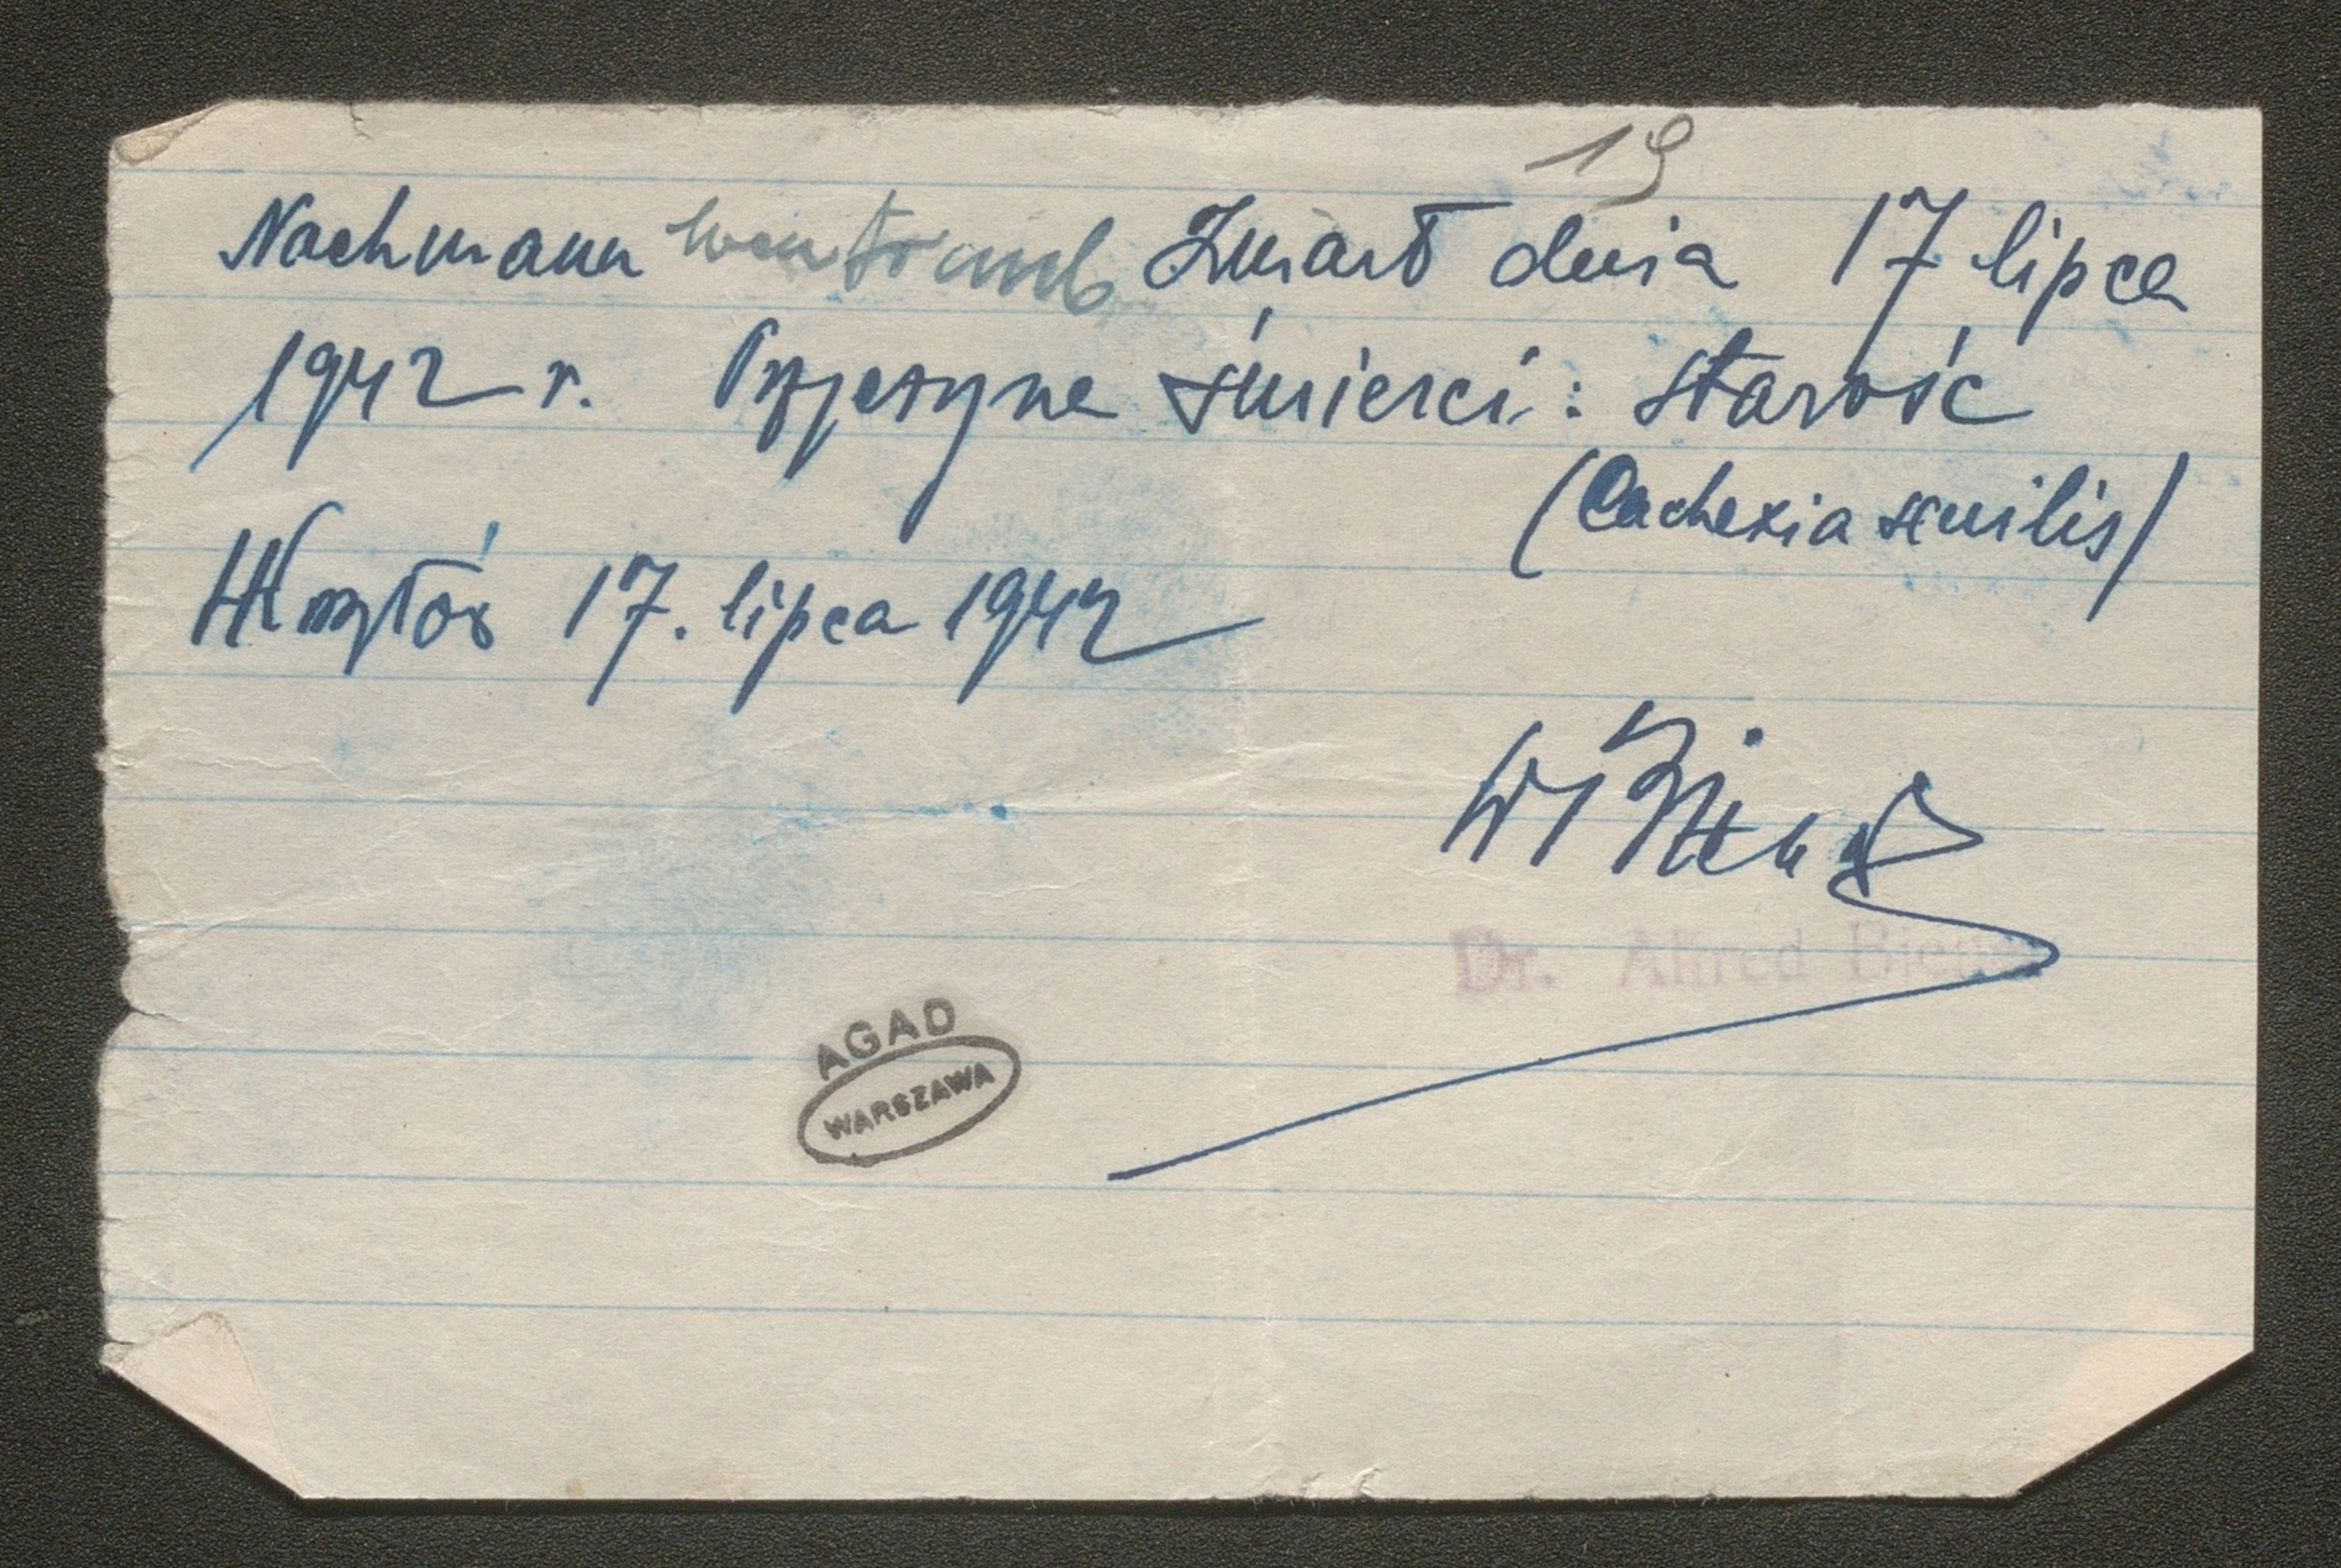 19
Nachmann Weintraub Zmarł dnia 17 lipca
1942 r. Przyczyna śmierci: starość
(Cachexia senilis)
17. lipca 1942
Dr. Alfred
AGAD
WARSZAWA